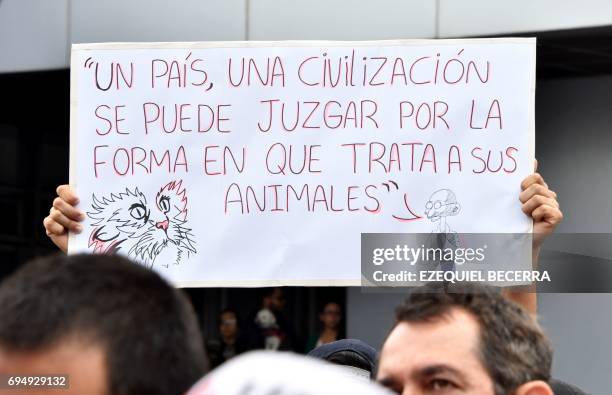 "UN PAÍS, UNA CIVILIZACIÓN
SE PUEDE JUZGAR POR LA
FORMA EN QUE TRATA A SUS
ANIMALES"
gettyimages®
EZEQUIEL BECERRA
694929530